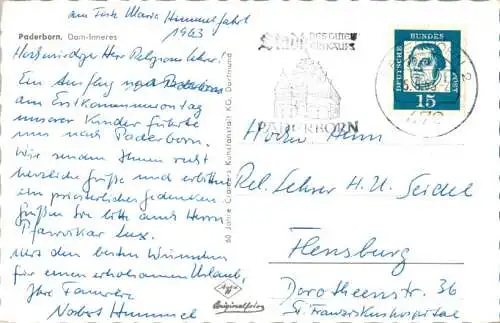 am Feste Mariä Himmelfahrt
1963
Paderborn, Dom-Inneres
Hochwürdiger Herr Religionslehrer!
Ein Ausflug nach Paderborn
am Erstkommuniontag
unserer Kinder führte
uns nach Paderborn.
Wir senden Ihnen recht
herzliche Grüße und erbitten
ein priesterliches Gedenken.
Grüßen Sie bitte auch Herrn
Pfarrvikar Lux.
Mit den besten Wünschen
für einen erholsamen Urlaub,
Ihre Familie
Norbert Himmel
60 Jahre Cramers Kunstanstalt KG, Dortmund
Originalfoto
Stadt DES GUTEN
EINKAUFS
PADERBORN
DEUTSCHE BUNDESPOST
15
479
Herrn
Rel. Lehrer H. U. Seidel
Flensburg
Dorotheenstr. 36
St. Franziskushospital